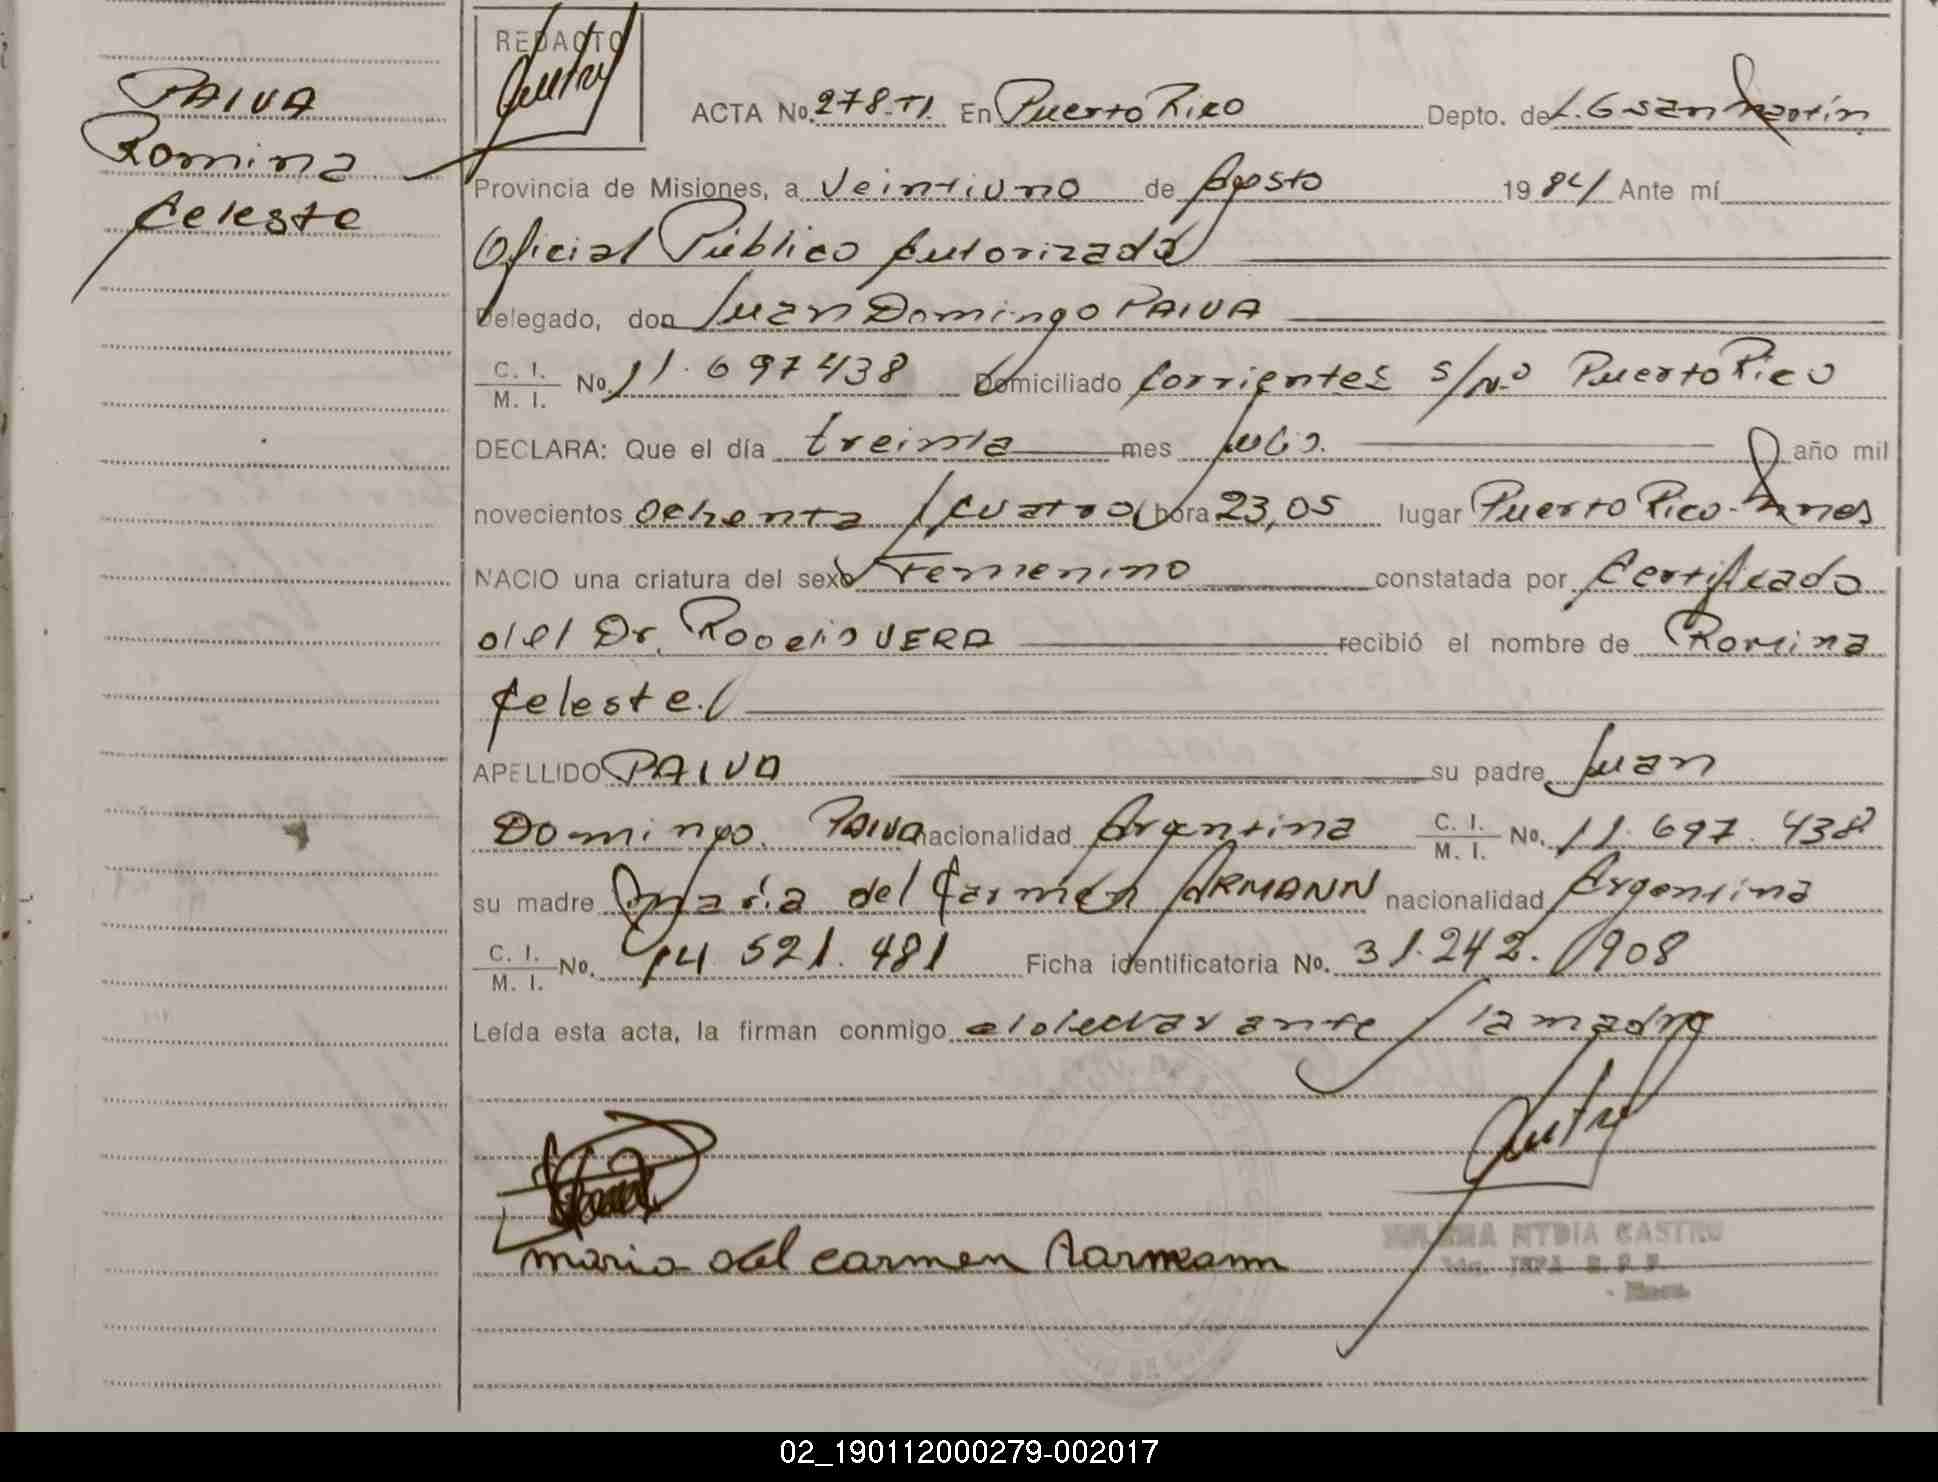 PAIVA
Romina
Celeste
REDACTO
ACTA No. 278-TI. En Puerto Rico Depto. de L. G San Martín
Provincia de Misiones, a Veintiuno de Agosto 1984 Ante mí
Oficial Público Autorizada
Delegado, don Juan Domingo PAIVA
C. I. / M. I. No. 11.697438 Domiciliado Corrientes s/Nº Puerto Rico
DECLARA: Que el día treinta mes Julio. año mil
novecientos ochenta y cuatro hora 23,05 lugar Puerto Rico-Mnes
NACIO una criatura del sexo Femenino constatada por Certificado
del Dr. Rogelio VERA recibió el nombre de Romina
Celeste.
APELLIDO PAIVA su padre Juan
Domingo PAIVA nacionalidad Argentina C. I. / M. I. No. 11.697.438
su madre María del Carmen ARMANN nacionalidad Argentina
C. I. / M. I. No. 14.521.481 Ficha identificatoria No. 31.242.908
Leída esta acta, la firman conmigo el declarante y la madre
maria del carmen Aarmann
NYDIA CASTRO
02_190112000279-002017